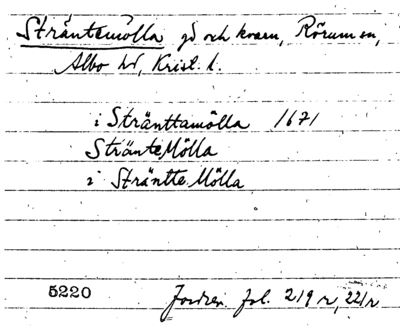 Sträntemölla gd och kvarn, Rörum sn,
Albo hd, Krist. l.
i Stränttamölla 1671
Stränte Mölla
i Sträntte Mölla
5220 Jordrev. fol. 219 r, 221 r